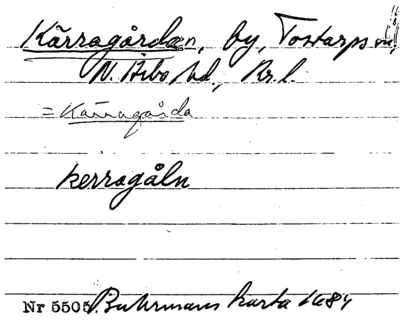 Kärragården, by, Tostarps sn,
N. Åsbo hd, Kr. l.
= Kärragårda
kerragåln
Nr 5505 Buhrmans karta 1684